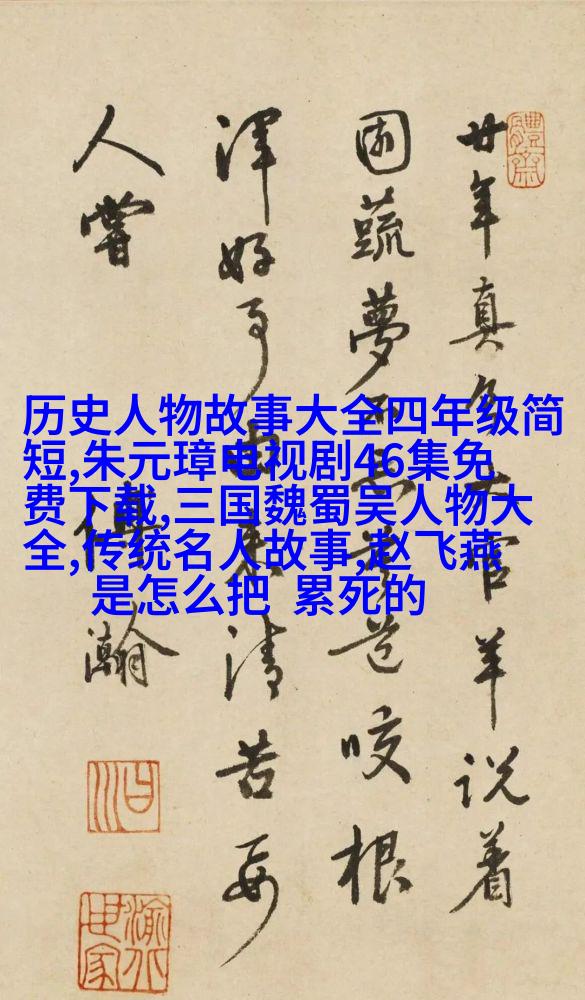 历史人物故事大全四年级简
短,朱元璋电视剧46集免
费下载,三国魏蜀吴人物大
全,传统名人故事,赵飞燕
是怎么把 累死的
體齋
廿年真大官羊說着
園蔬夢不忘道咬根
渾好事由來清苦要
人嘗
傅瀚